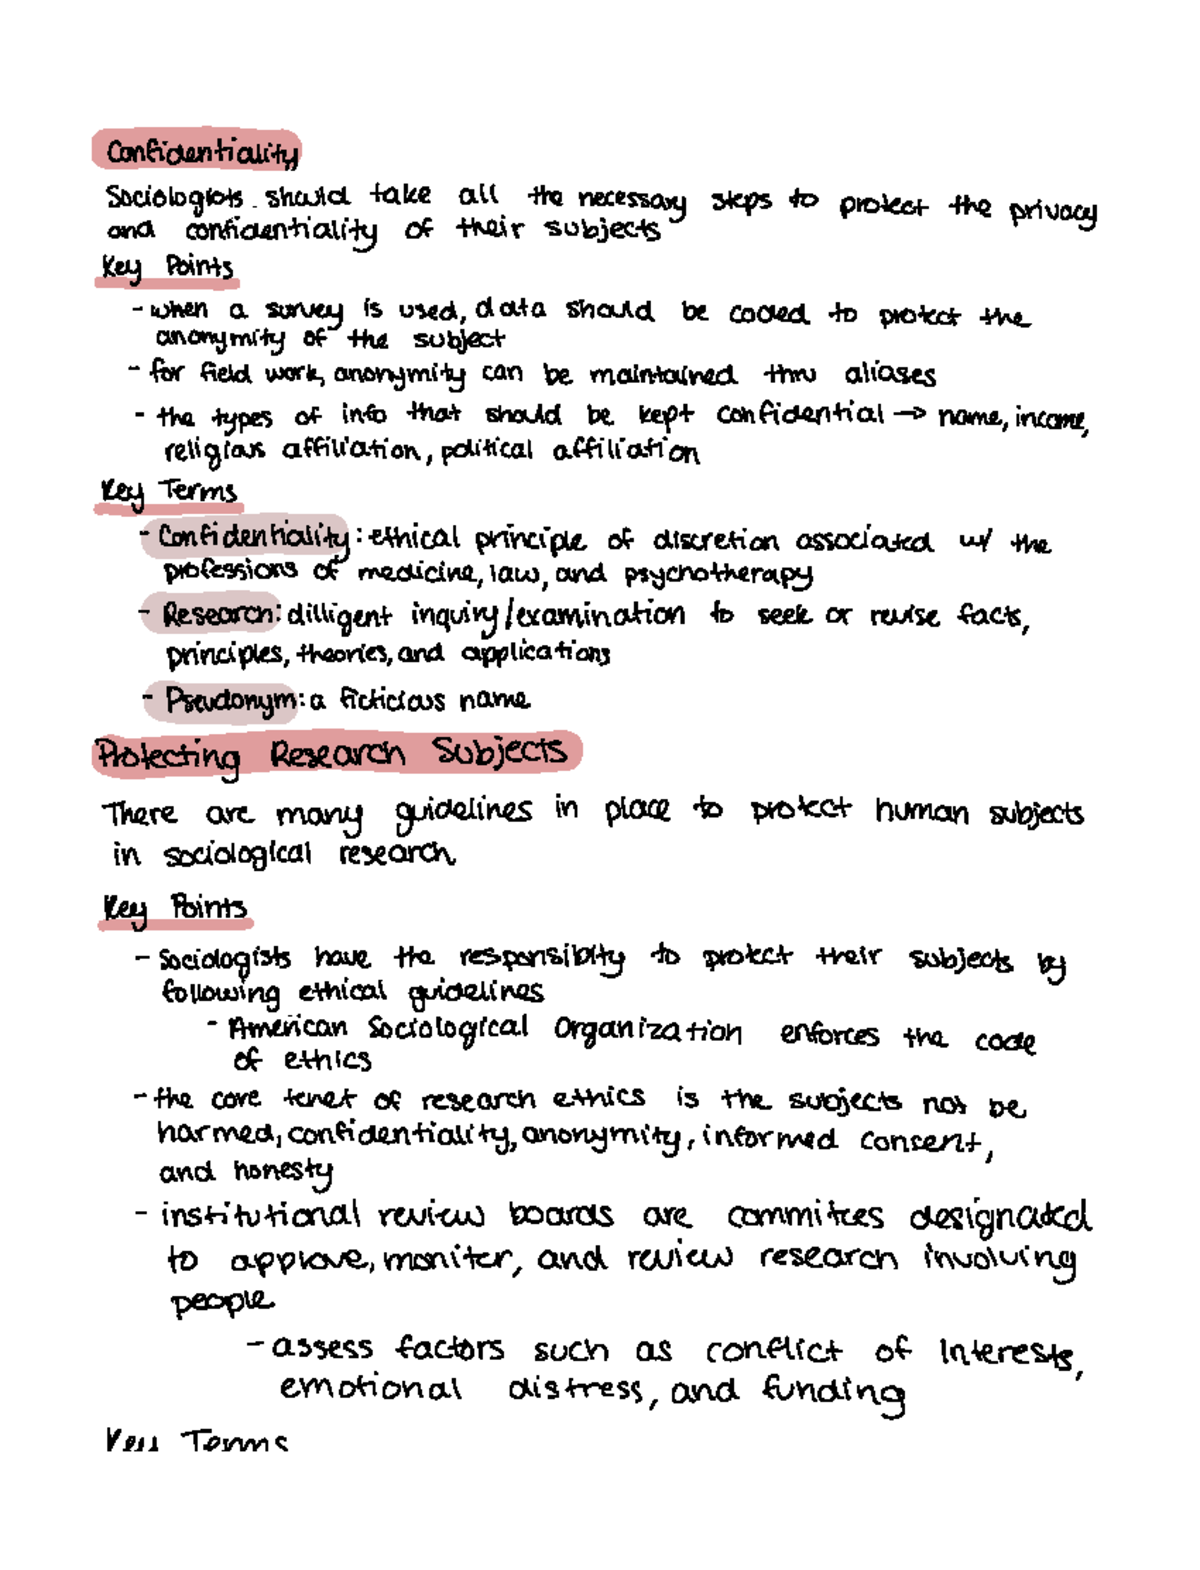 Confidentiality
Sociologists should take all the necessary steps to protect the privacy
and confidentiality of their subjects
Key Points
- when a survey is used, data should be coded to protect the
anonymity of the subject
- for field work, anonymity can be maintained thru aliases
- the types of info that should be kept confidential → name, income,
religious affiliation, political affiliation
Key Terms
- Confidentiality: ethical principle of discretion associated w/ the
professions of medicine, law, and psychotherapy
- Research: dilligent inquiry/examination to seek or revise facts,
principles, theories, and applications
- Pseudonym: a ficticious name
Protecting Research Subjects
There are many guidelines in place to protect human subjects
in sociological research
Key Points
- Sociologists have the responsiblity to protect their subjects by
following ethical guidelines
- American Sociological Organization enforces the code
of ethics
- the core tenet of research ethics is the subjects not be
harmed, confidentiality, anonymity, informed consent,
and honesty
- institutional review boards are commitees designated
to approve, moniter, and review research involving
people
- assess factors such as conflict of interests,
emotional distress, and funding
Key Terms